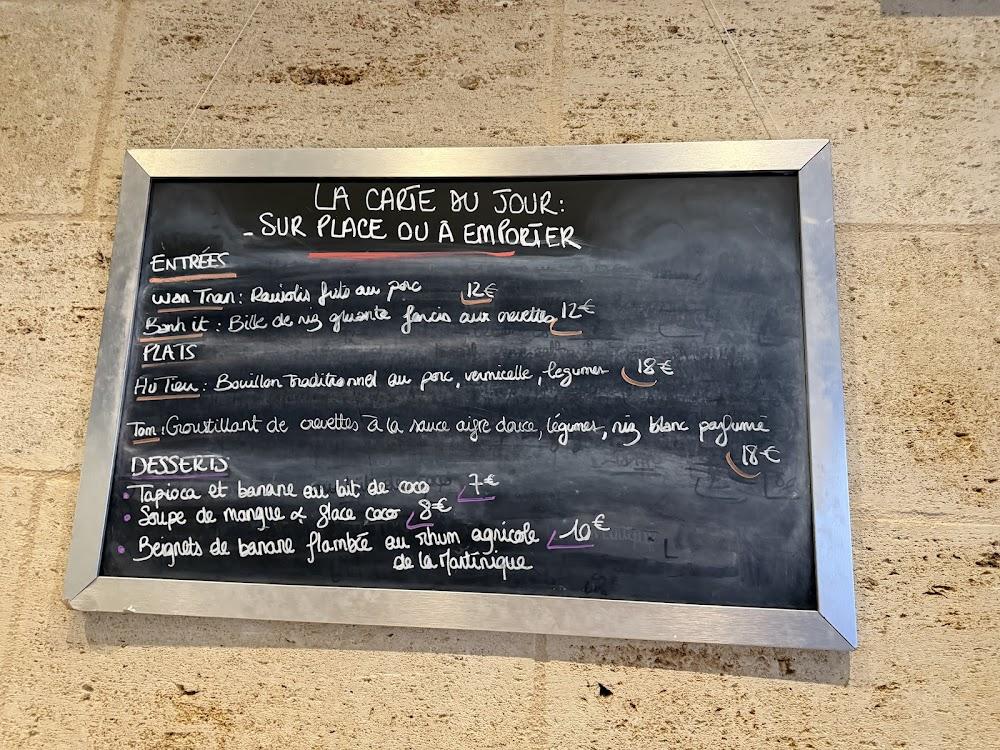 LA CARTE DU JOUR:
- SUR PLACE OU À EMPORTER
ENTRÉES
Wan Tran : Raviolis frits au porc 12€
Banh it : Bille de riz gluante farcis aux crevettes 12€
PLATS
Hu Tieu : Bouillon Traditionnel au porc, vermicelle, legumes 18€
Tom : Croustillant de crevettes à la sauce aigre douce, légumes, riz blanc parfumé
18€
DESSERTS
• Tapioca et banane au lait de coco 7€
• Soupe de mangue & glace coco 8€
• Beignets de banane flambée au rhum agricole 10€
de la Martinique